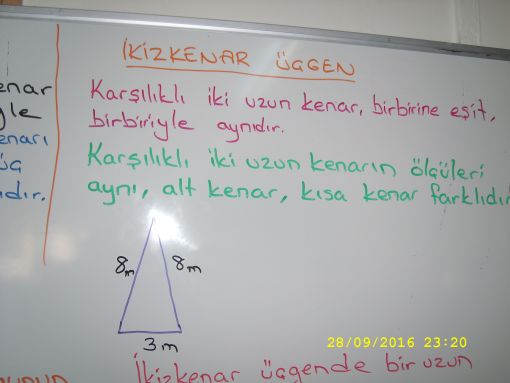 İKİZKENAR ÜÇGEN
Karşılıklı iki uzun kenar, birbirine eşit,
birbiriyle aynıdır.
Karşılıklı iki uzun kenarın ölçüleri
aynı, alt kenar, kısa kenar farklıdır
8m 8m
3m
28/09/2016 23:20
İkizkenar üçgende bir uzun
enar
yle
enarı
üç
ıdır.